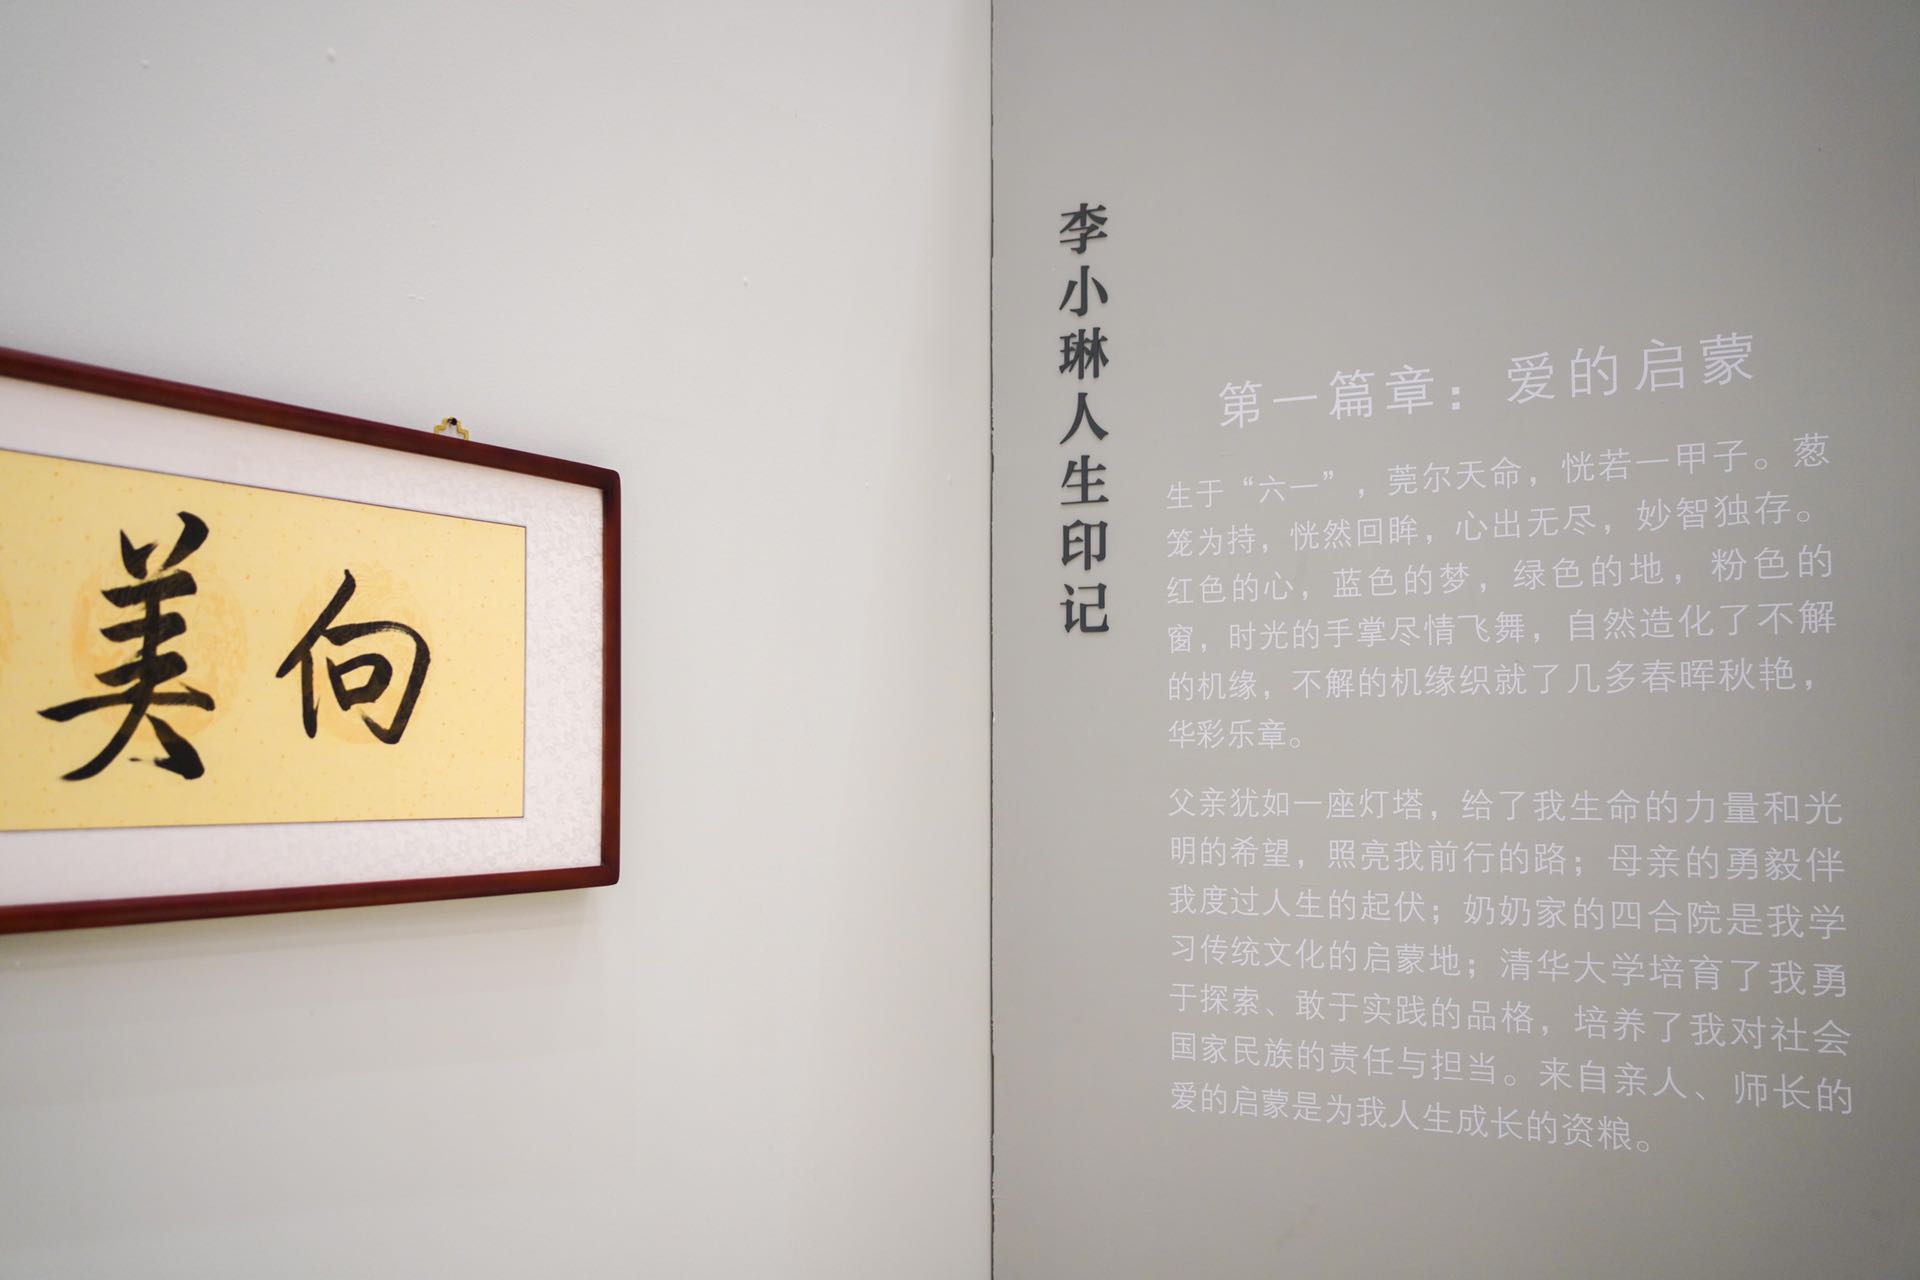 美向
李小琳人生印记
第一篇章：爱的启蒙
生于“六一”，莞尔天命，恍若一甲子。葱
笼为持，恍然回眸，心出无尽，妙智独存。
红色的心，蓝色的梦，绿色的地，粉色的
窗，时光的手掌尽情飞舞，自然造化了不解
的机缘，不解的机缘织就了几多春晖秋艳，
华彩乐章。
父亲犹如一座灯塔，给了我生命的力量和光
明的希望，照亮我前行的路；母亲的勇毅伴
我度过人生的起伏；奶奶家的四合院是我学
习传统文化的启蒙地；清华大学培育了我勇
于探索、敢于实践的品格，培养了我对社会
国家民族的责任与担当。来自亲人、师长的
爱的启蒙是为我人生成长的资粮。